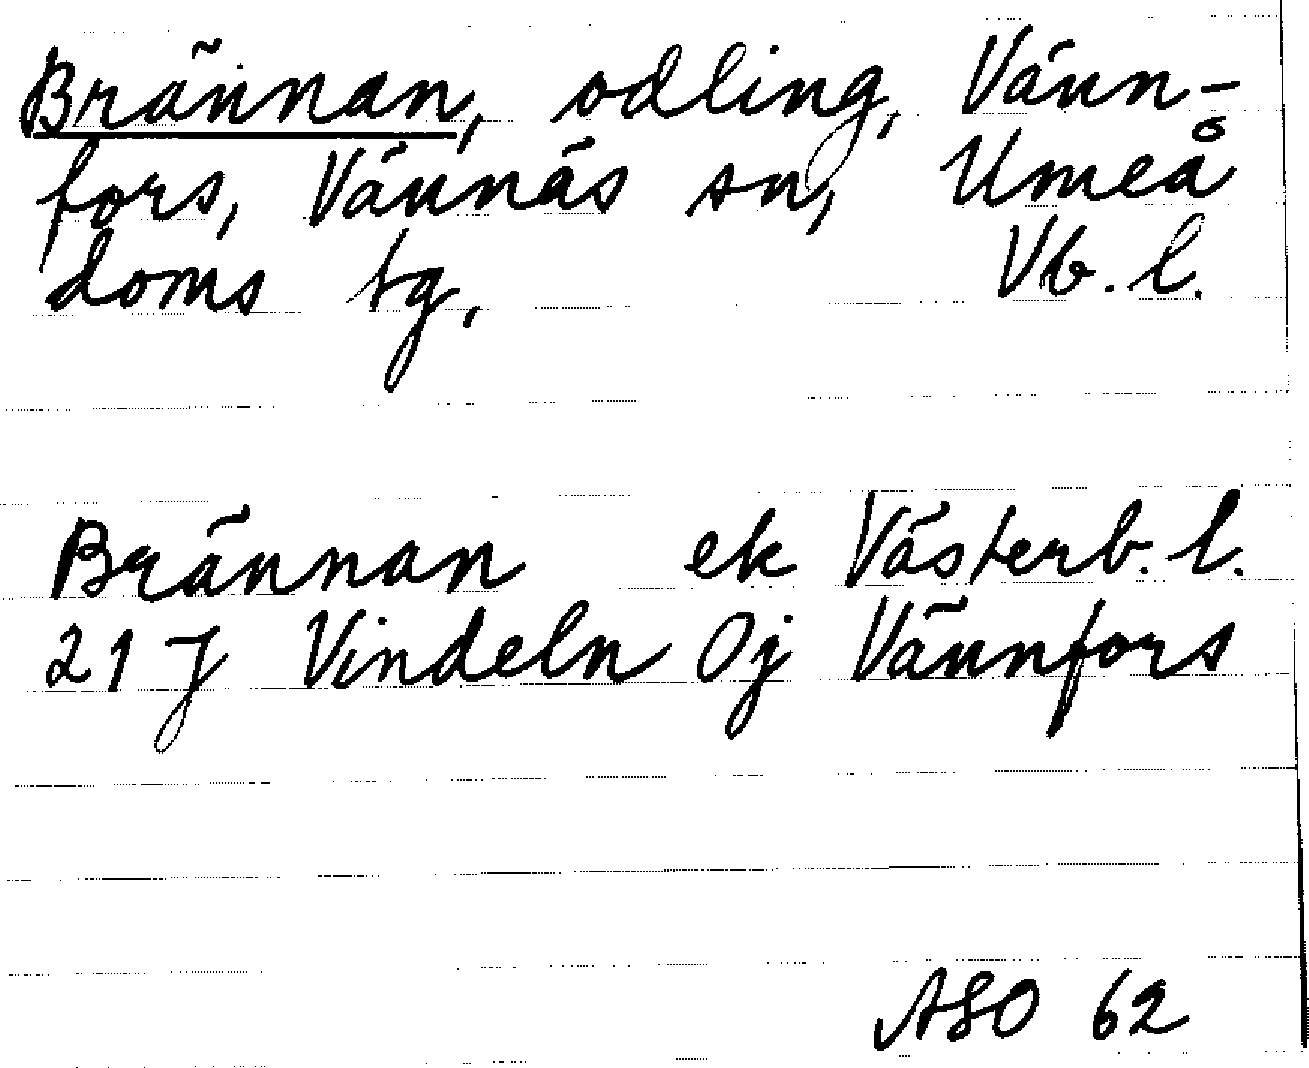 Brännan, odling, Vänn-
fors, Vännäs sn, Umeå
doms tg, Vb. l.
Brännan ek Västerb. l.
21 J Vindeln 0j Vännfors
ASO 62